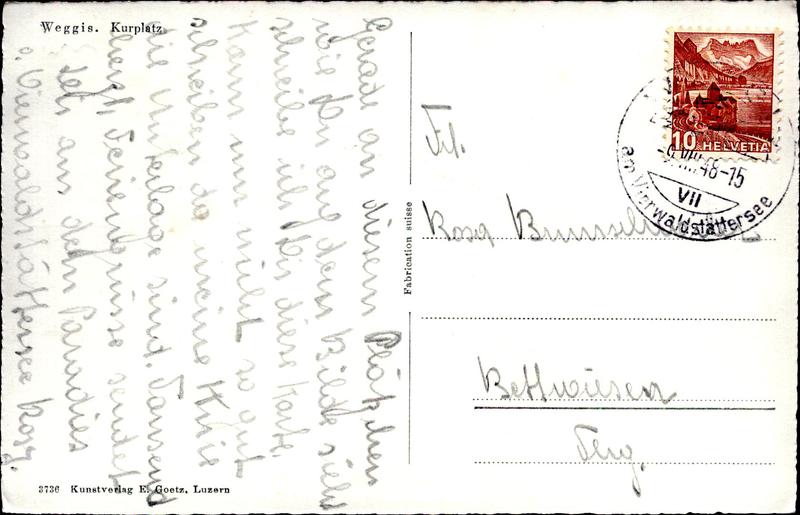 Weggis. Kurplatz
Gerade an diesem Plätzchen
wie du auf dem Bilde sieht
schreibe ich Dir diese Karte.
Kann nun nicht so gut
schreiben da meine Knie
die Unterlage sind. Tausend
herzl. Feriengrüsse sendet
Dir aus dem Paradies
v. Vierwaldstättersee Rosy.
3736 Kunstverlag E. Goetz, Luzern
Fabrication suisse
10 HELVETIA
VIII 48-15
VII
am Vierwaldstättersee
Frl.
Rosa
Bettwiesen
Thrg.